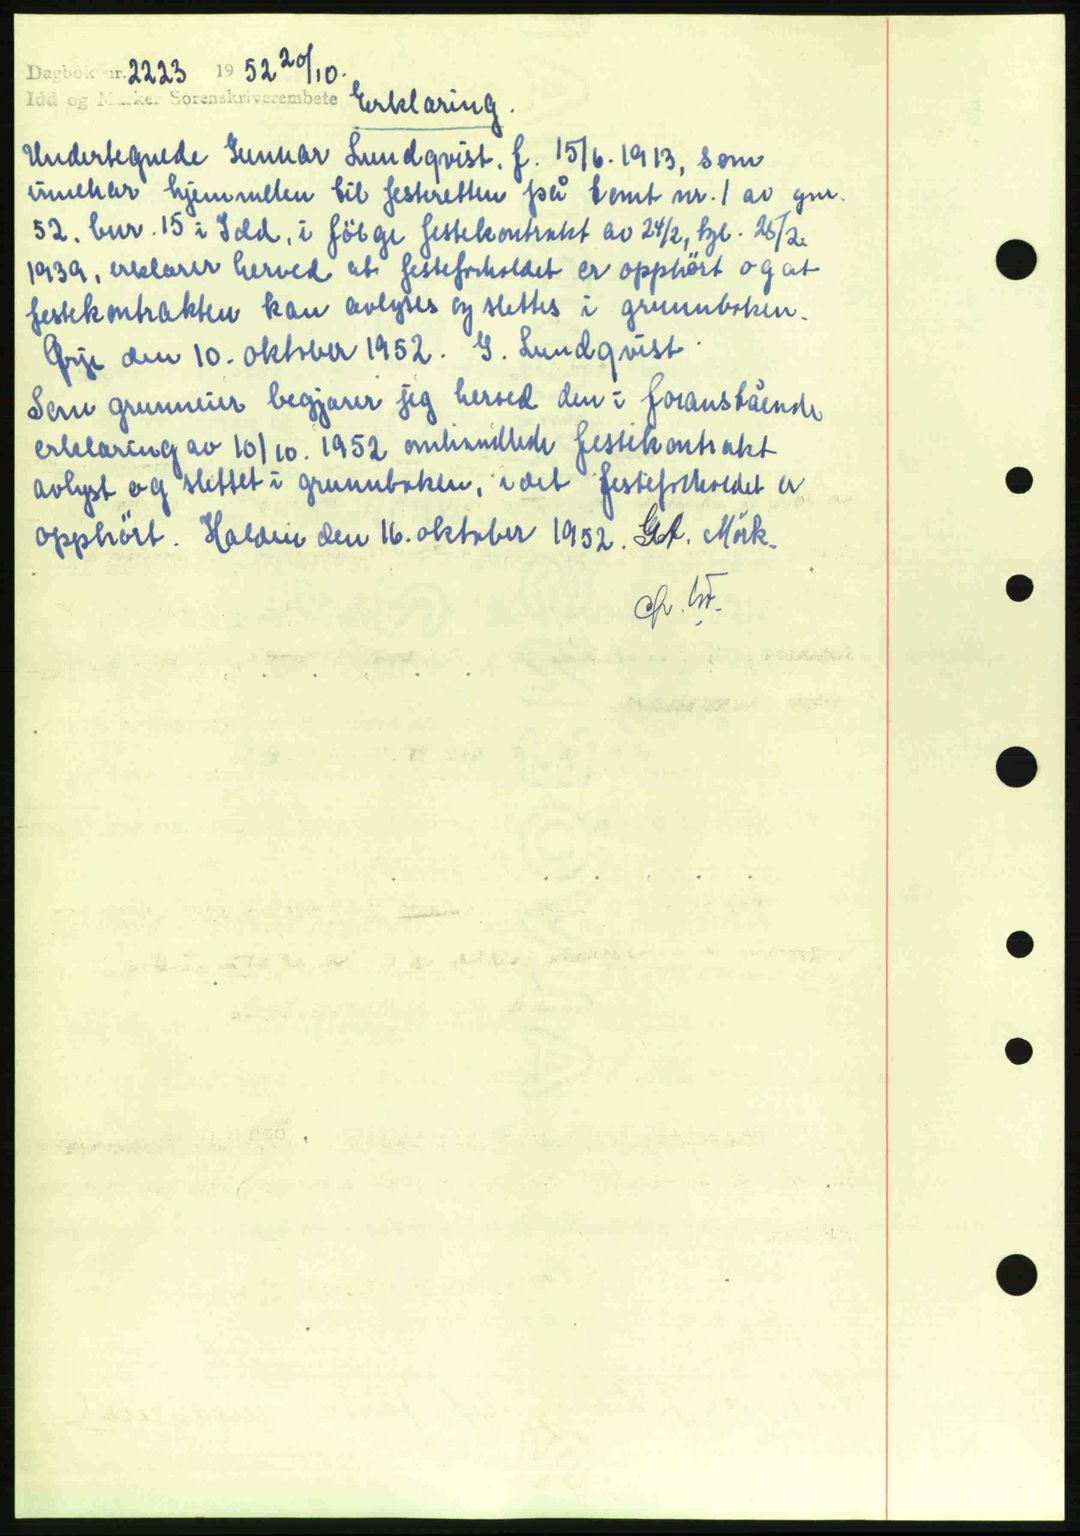 Dagbok nr. 2223 1952 20/10.
Idd og Marker Sorenskriverembete Erklæring.
Undertegnede Gunnar Lundqvist, f. 15/6. 1913, som
innehar hjemmelen til festeretten på tomt nr. 1 av gnr.
52, bnr. 15 i Idd, i følge festekontrakt av 24/2, tgl. 25/2.
1939, erklærer herved at festeforholdet er opphört og at
festekontrakten kan avlyses og slettes i grunnboken.
Ørje den 10. oktober 1952. G. Lundqvist.
Som grunneier begjærer jeg herved den i foranstående
erklæring av 10/10. 1952 omhandlede festekontrakt
avlyst og slettet i grunnboken, idet festeforholdet er
opphört. Halden den 16. oktober 1952. Mörk.